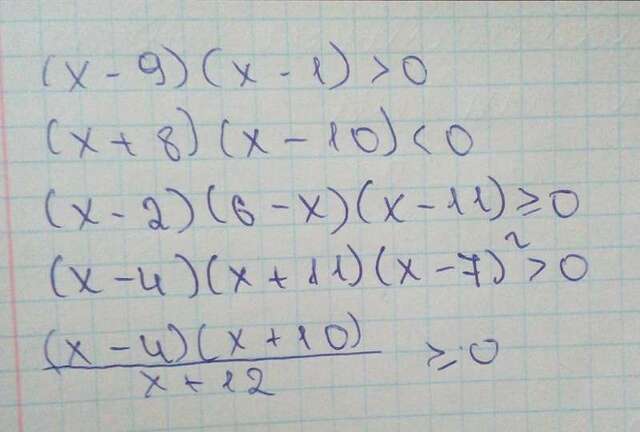 (x - 9)(x - 1) > 0
(x + 8)(x - 10) < 0
(x - 2)(6 - x)(x - 11) ≥ 0
(x - 4)(x + 11)(x - 7)² > 0
(x - 4)(x + 10)
x + 12
≥ 0